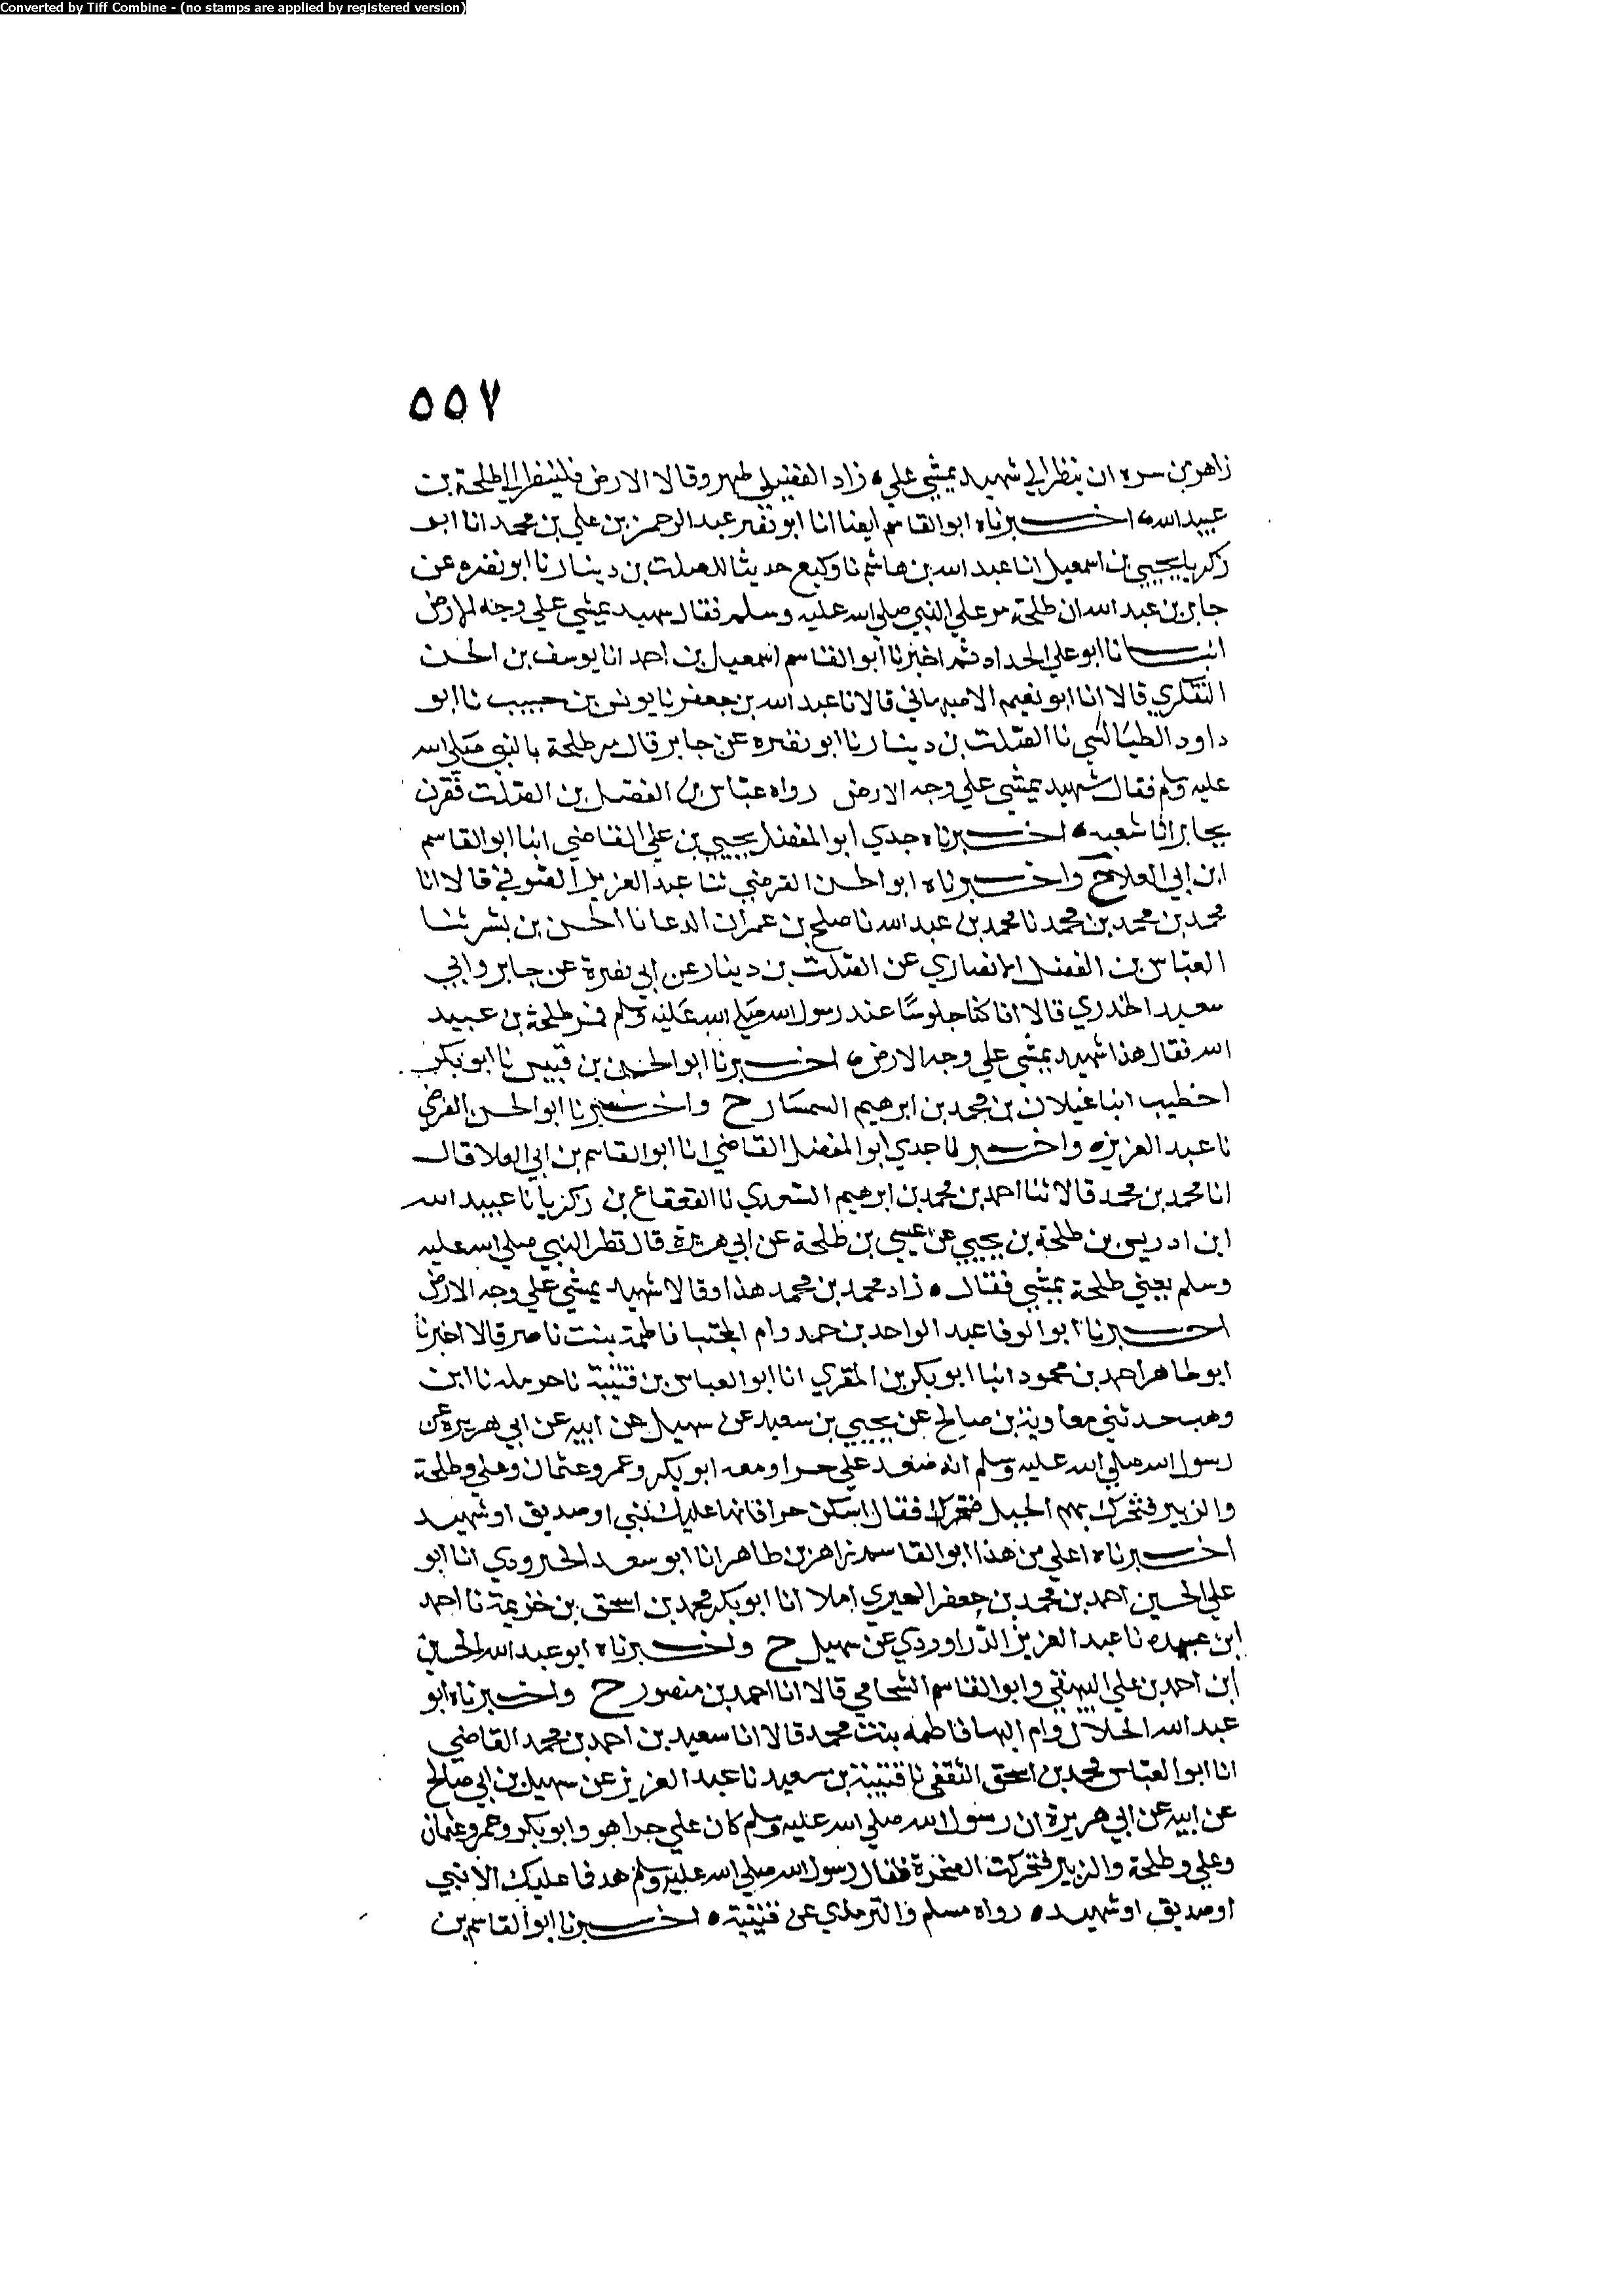 Converted by Tiff Combine - (no stamps are applied by registered version)
٥٥٧
زاهر من سره ان ينظر الي شهيد يمشي علي زاد الفضيلي ظهر وقالا الارض فلينظر الي طلحة بن
عبيد الله اخبرناه ابو القاسم ايضا انا ابو نصر عبد الرحمن بن علي بن محمد انا ابو
زكريا يحيي بن اسمعيل انا عبد الله بن هاشم نا وكيع حديثا للصلت بن دينار نا ابو نضره عن
جابر بن عبد الله ان طلحة مر علي النبي صلي الله عليه وسلم فقال سهيد يمشي علي وجه الارض
انبانا ابو علي الحداد ثم اخبرنا ابو القاسم اسمعيل بن احمد انا يوسف بن الحسن
التفكري قالا انا ابو نعيم الاصبهاني قالا نا عبد الله بن جعفر نا يونس بن حبيب نا ابو
داود الطيالسي نا الصلت بن دينار نا ابو نضره عن جابر قال مر طلحة بالنبي صلي الله
عليه وسلم فقال شهيد يمشي علي وجه الارض رواه عباس بن الفضل بن الصلت فقرن
بجابر ابا سعيد اخبرناه جدي ابو المفضل يحيي بن علي القاضي انبا ابو القاسم
ابن ابي العلا ح واخبرناه ابو الحسن الفرضي ثنا عبد العزيز الصوفي قالا انا
محمد بن محمد بن محمد نا محمد بن عبد الله نا صلح بن عمران الدعا نا الحسن بن بشر ثنا
العباس بن الفضل الانصاري عن الصلت بن دينار عن ابي نضرة عن جابر وابي
سعيد الخدري قالا انا كنا جلوسا عند رسول الله صلي الله عليه وسلم فمر طلحة بن عبيد
الله فقال هذا شهيد يمشي علي وجه الارض اخبرنا ابو الحسن بن قبيس نا ابو بكر
اخطيب انبا غيلان بن محمد بن ابرهيم السمسار ح واخبرنا ابو الحسن الفرضي
نا عبد العزيز واخبرنا جدي ابو المفضل القاضي انا ابو القاسم بن ابي العلا قال
انا محمد بن محمد قالا ثنا احمد بن محمد بن ابرهيم السعدي نا القعقاع بن زكريا نا عبيد الله
ابن ادريس بن طلحة بن يحيي عن عيسي بن طلحة عن ابي هريرة قال نظر النبي صلي الله عليه
وسلم يعني طلحة يمشي فقال زاد محمد بن محمد هذا وقالا شهيد يمشي علي وجه الارض
اخبرنا ابو الوفا عبد الواحد بن حمد وام المجتبا فاطمة بنت ناصر قالا اخبرنا
ابو طاهر احمد بن محمود انبا ابو بكر بن المقري انا ابو العباس بن قتيبة نا حرمله نا ابن
وهب حدثني معاوية بن صالح عن يحيي بن سعيد عن سهيل عن ابيه عن ابي هريرة عن
رسول الله صلي الله عليه وسلم انه صعد علي حرا ومعه ابو بكر وعمر وعثمان وعلي وطلحة
والزبير فتحرك بهم الجبل فقال اسكن حرا فانما عليك نبي او صديق او شهيد
اخبرناه اعلي من هذا ابو القاسم زاهر بن طاهر انا ابو سعد الجنزرودي انا ابو
علي الحسين احمد بن محمد بن جعفر البحيري املا انا ابو بكر محمد بن اسحق بن خزيمة نا احمد
ابن عبده نا عبد العزيز الدراوردي عن سهيل ح واخبرناه ابو عبد الله الحسين
ابن احمد بن علي البيهقي وابو القاسم الشحامي قالا انا احمد بن منصور ح واخبرناه ابو
عبد الله الخلال وام البها فاطمه بنت محمد قالا انا سعيد بن احمد بن محمد القاضي
انا ابو العباس محمد بن اسحق الثقفي نا قتيبة بن سعيد نا عبد العزيز عن سهيل بن ابي صالح
عن ابيه عن ابي هريرة ان رسول الله صلي الله عليه وسلم كان علي حرا هو وابو بكر وعمر وعثمان
وعلي وطلحة والزبير فتحركت الصخرة فقال رسول الله صلي الله عليه وسلم هد فما عليك الا نبي
او صديق او شهيد رواه مسلم والترمذي عن قتيبة اخبرنا ابو القاسم بن